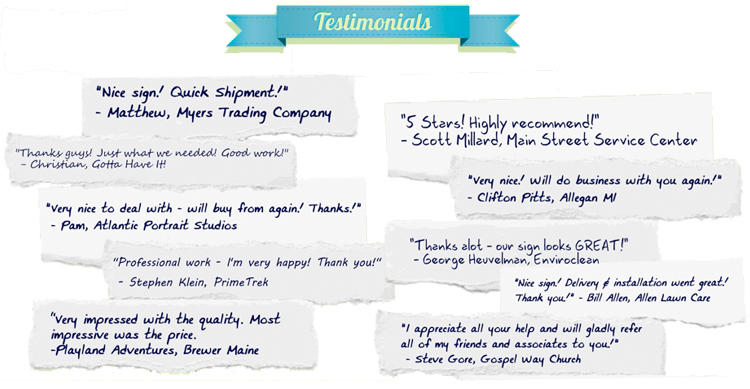 Testimonials
"Nice sign! Quick Shipment!"
- Matthew, Myers Trading Company
"Thanks guys! Just what we needed! Good work!"
- Christian, Gotta Have It!
"Very nice to deal with - will buy from again! Thanks!"
- Pam, Atlantic Portrait Studios
"Professional work - I'm very happy! Thank you!"
- Stephen Klein, PrimeTrek
"Very impressed with the quality. Most
impressive was the price.
-Playland Adventures, Brewer Maine
"5 Stars! Highly recommend!"
- Scott Millard, Main Street Service Center
"Very nice! Will do business with you again!"
- Clifton Pitts, Allegan MI
"Thanks alot - our sign looks GREAT!"
- George Heuvelman, Enviroclean
"Nice sign! Delivery & installation went great!
Thank you!" - Bill Allen, Allen Lawn Care
"I appreciate all your help and will gladly refer
all of my friends and associates to you!"
- Steve Gore, Gospel Way Church